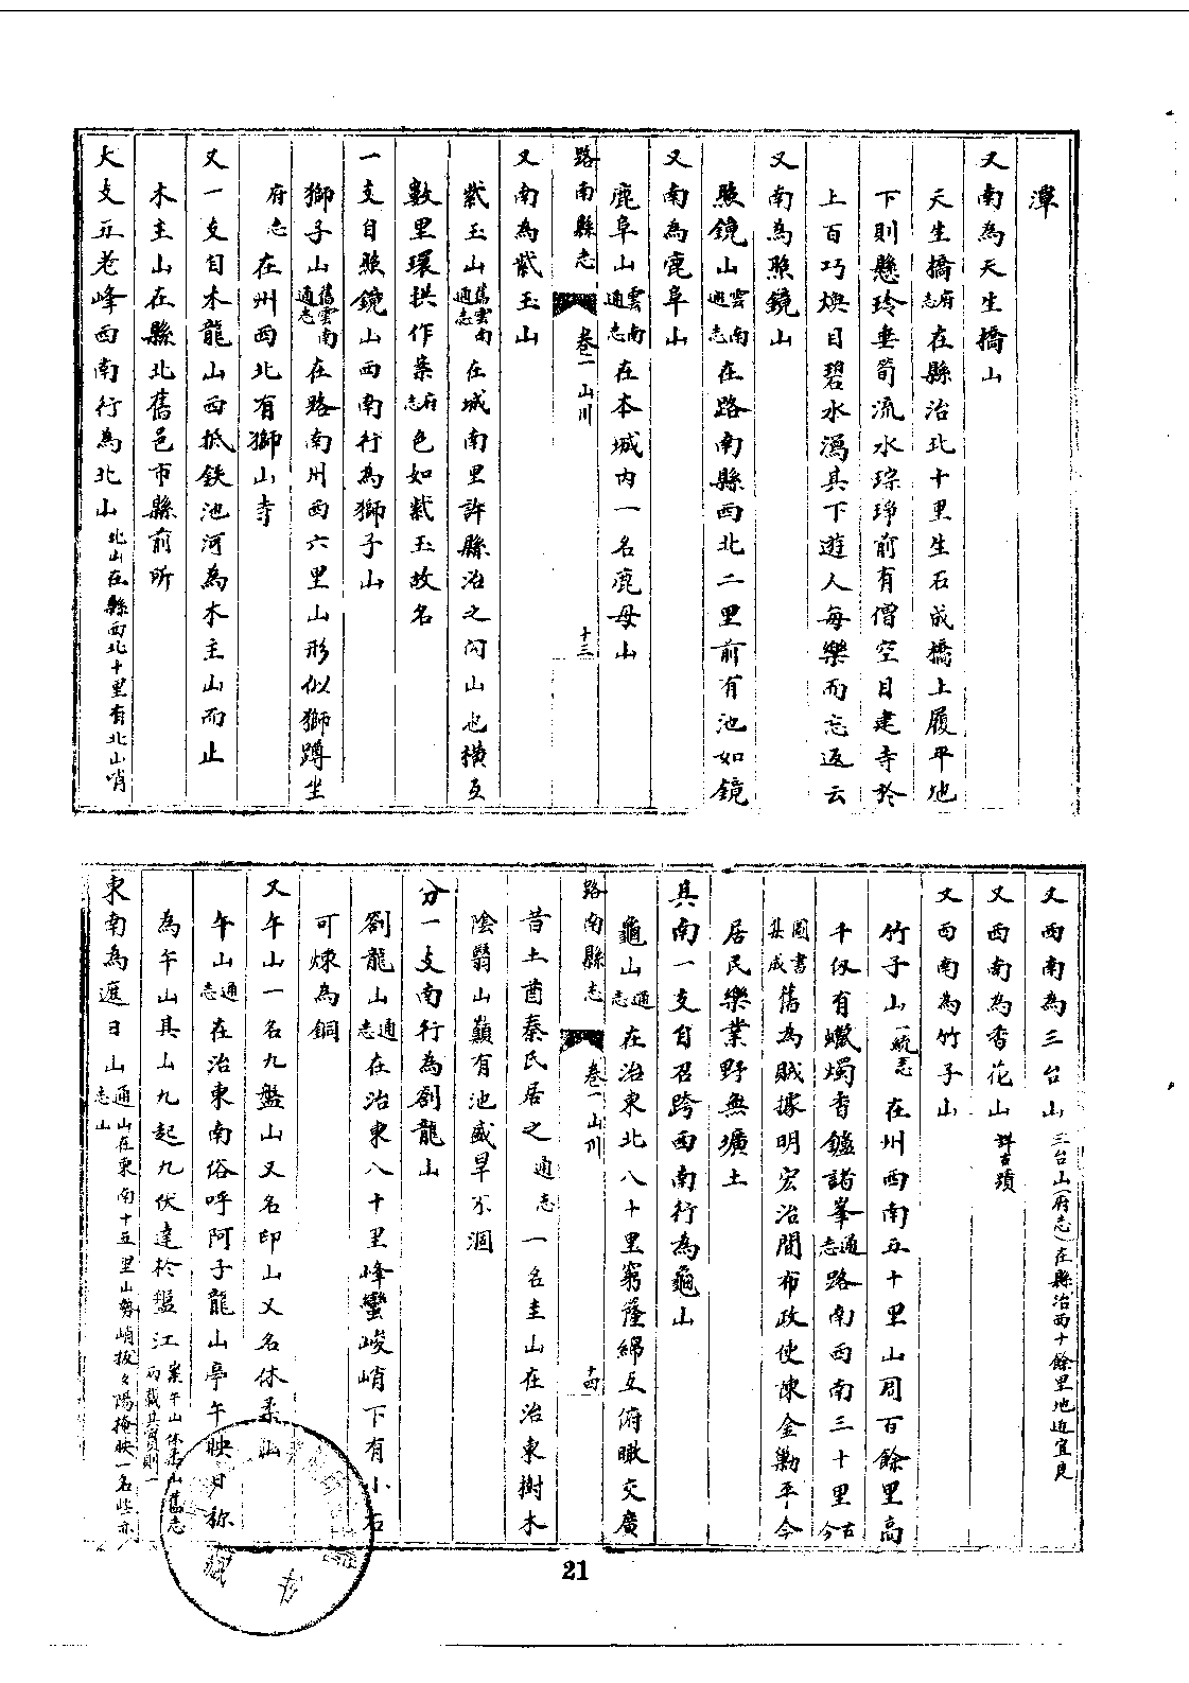 潭
又南為天生橋山
天生橋府志在縣治北十里生石成橋上履平地
下則懸玲垂筍流水琮琤前有僧空目建寺於
上百巧煥目碧水瀉其下遊人每樂而忘返云
又南為照鏡山
照鏡山雲南通志在路南縣西北二里前有池如鏡
又南為鹿阜山
鹿阜山雲南通志在本城内一名鹿母山
路南縣志 卷一 山川 十三
又南為紫玉山
紫玉山舊雲南通志在城南里許縣治之内山也橫亙
數里環拱作案府志色如紫玉故名
一支自照鏡山西南行為獅子山
獅子山舊雲南通志在路南州西六里山形似獅蹲坐
府志在州西北有獅山寺
又一支自木龍山西抵鉄池河為木主山而止
木主山在縣北舊邑市縣前所
大支五老峰西南行為北山北山在縣西北十里有北山哨
又西南為三台山三台山(府志)在縣治西十餘里地近宜良
又西南為香花山詳古蹟
又西南為竹子山
竹子山一統志在州西南五十里山周百餘里高
千仭有蠟燭香鑪諸峯通志路南西南三十里古今
圖書集成舊為賊據明宏治間布政使陳金勦平今
居民樂業野無壙土
其南一支自召跨西南行為龜山
龜山通志在治東北八十里窮窿綿亙俯瞰交廣
路南縣志 卷一 山川 十四
昔土酋秦氏居之通志一名圭山在治東樹木
陰翳山巔有池盛旱不涸
分一支南行為劄龍山
劄龍山通志在治東八十里峰巒峻峭下有小石
可煉為銅
又午山一名九盤山又名印山又名休柔山
午山通志在治東南俗呼阿子龍山亭午映日称
為午山其山九起九伏達於盤江案午山休柔山舊志兩載其實則一
東南為遮日山通志山在東南十五里山勢峭拔夕陽掩映一名些亦山
21